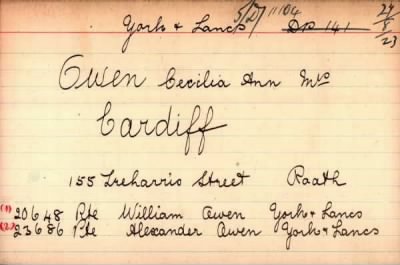 York & Lancs 5/27/1104 DP 141 24/8/23
Owen Cecilia Ann Mrs
Cardiff
155 Treharris Street Roath
(1) 20648 Pte William Owen York & Lancs
(2) 23686 Pte Alexander Owen York & Lancs